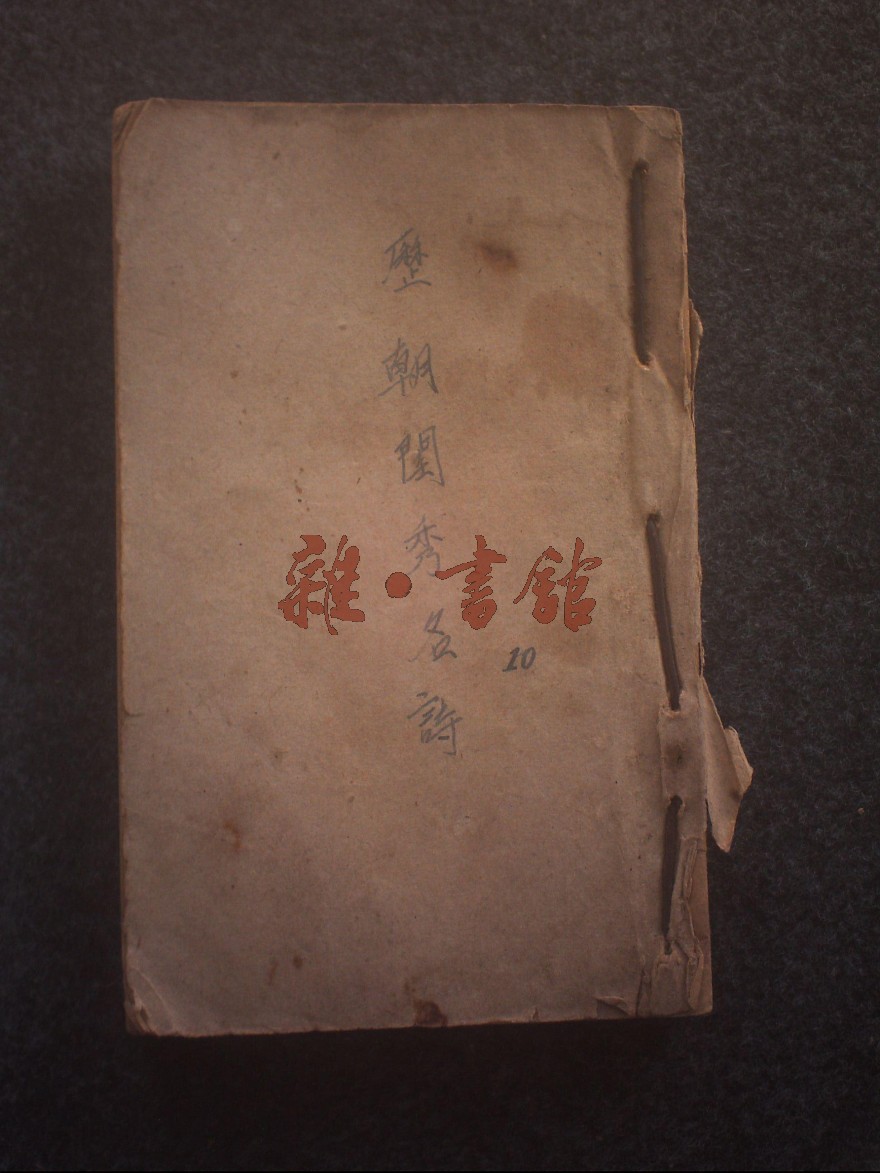 歷朝閨秀名詩
10
雜·書館